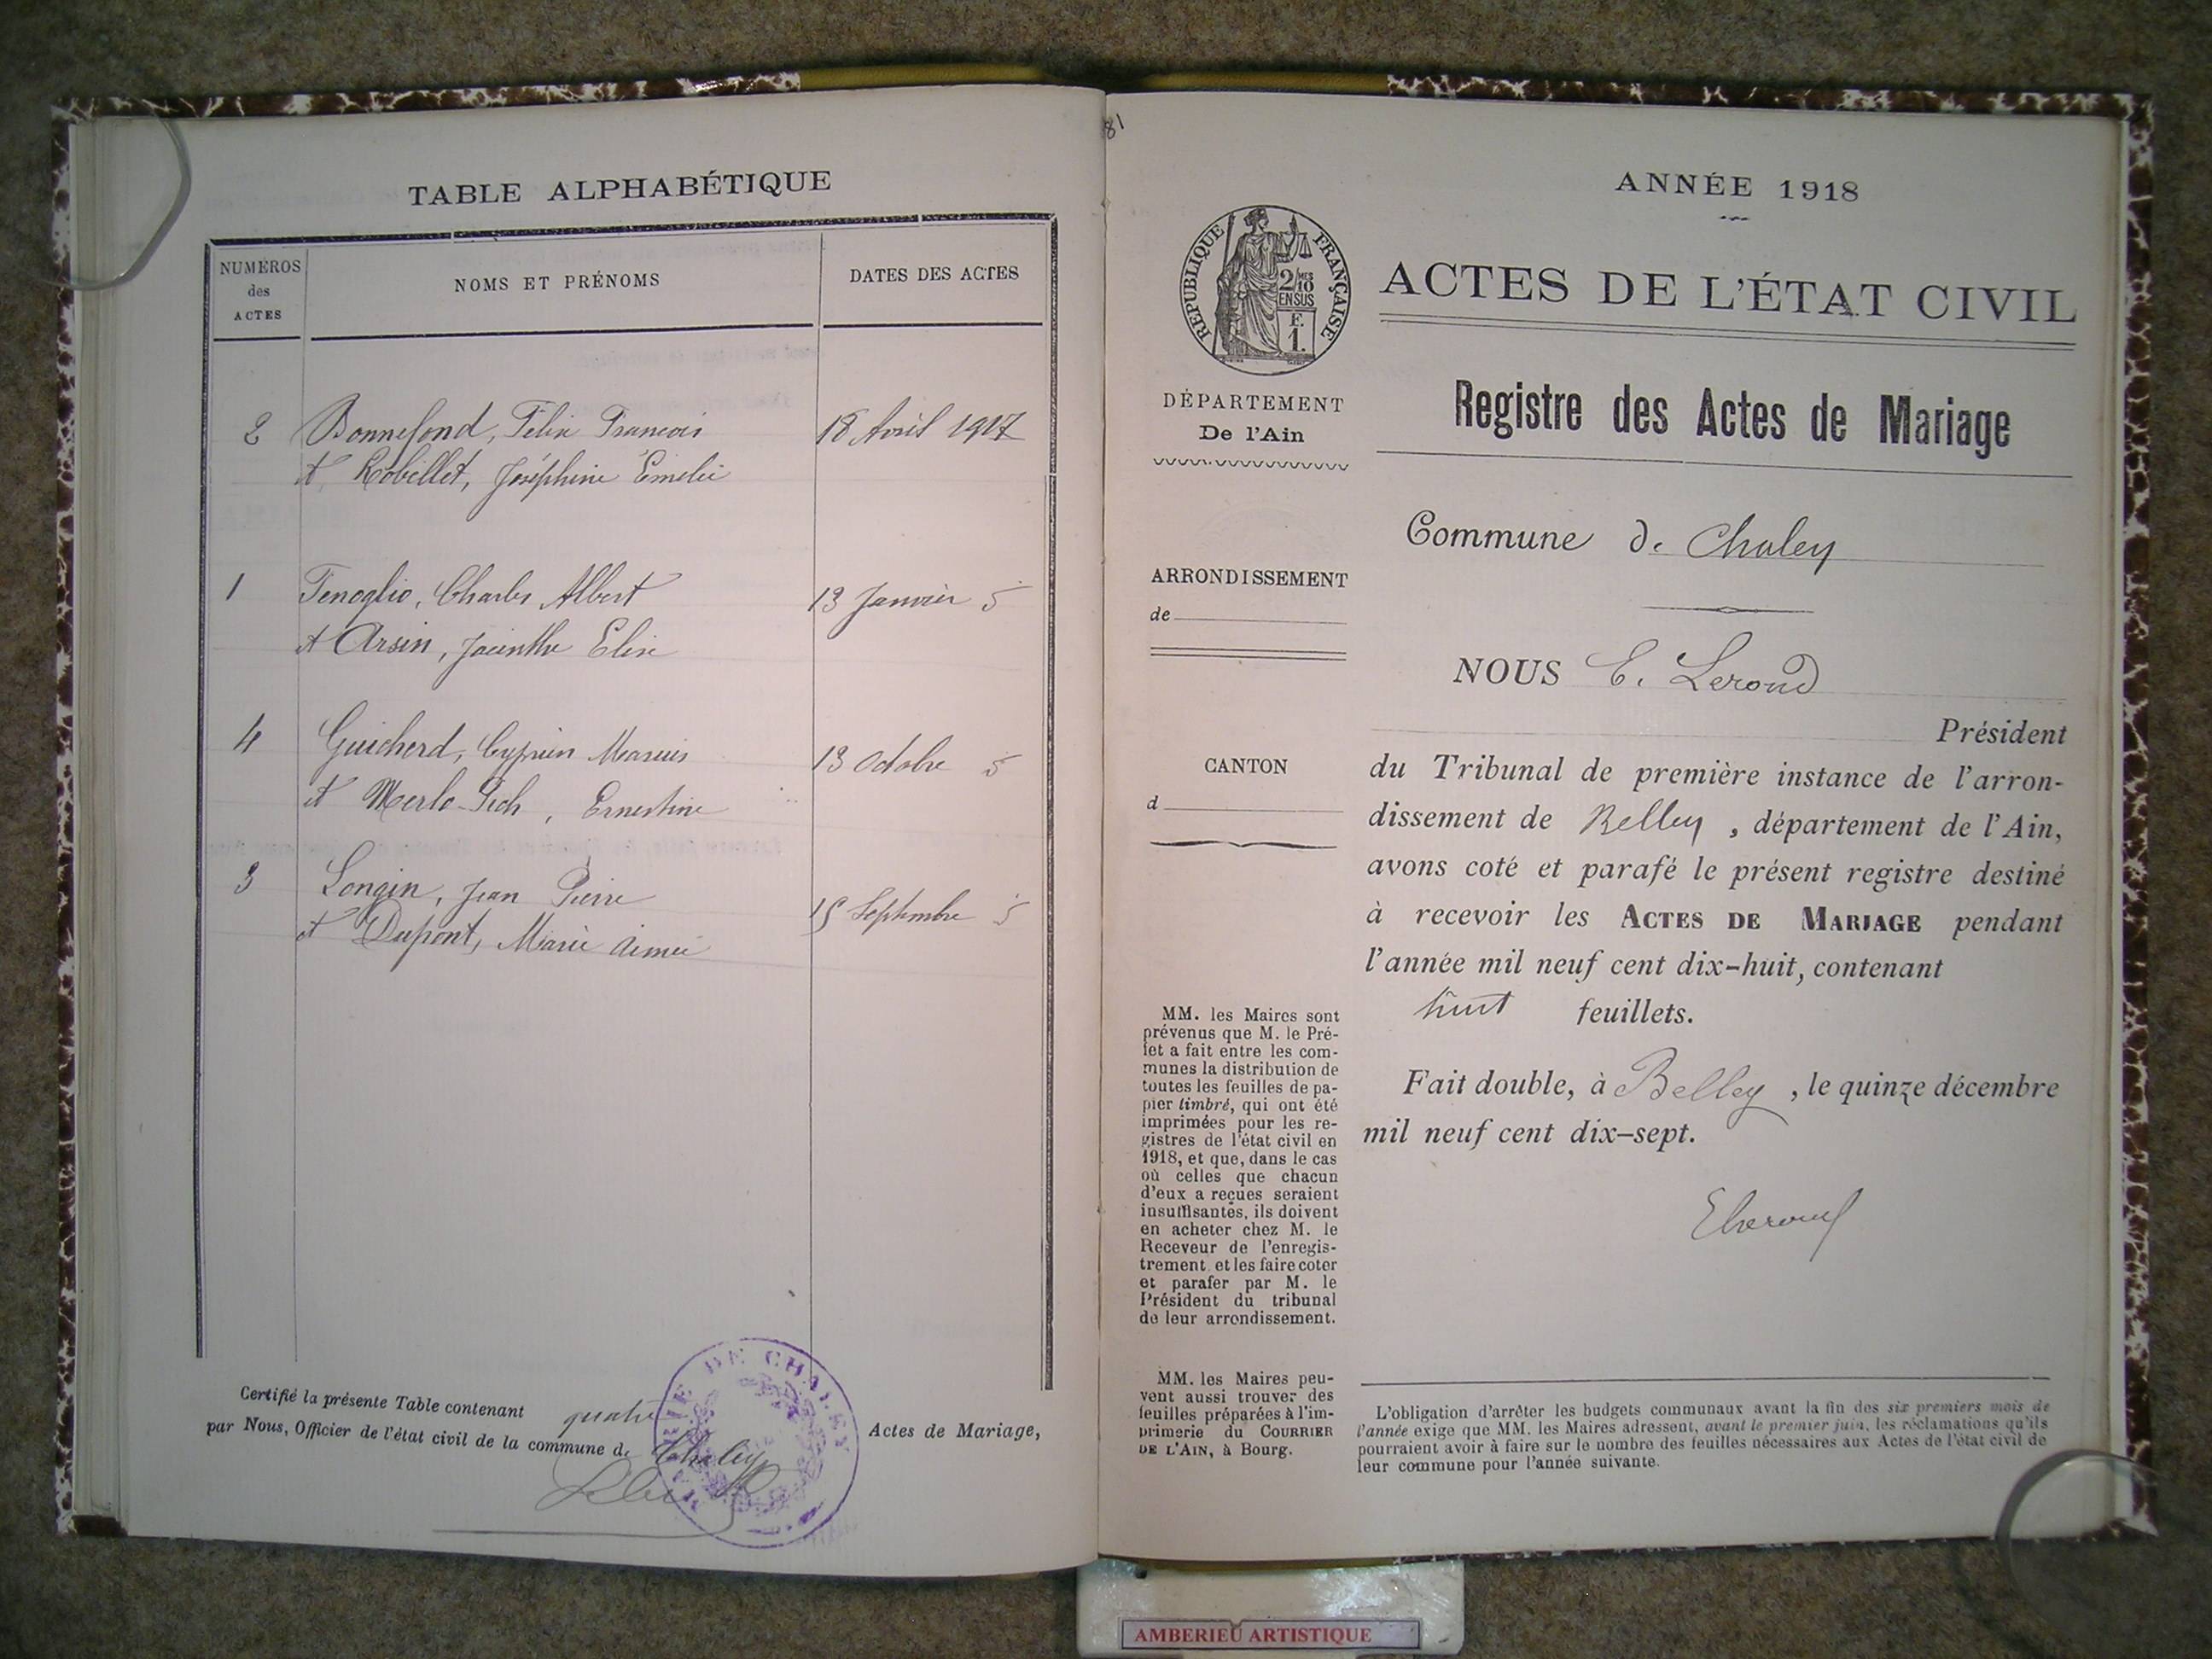 TABLE ALPHABÉTIQUE
NUMÉROS
des
ACTES
NOMS ET PRÉNOMS
DATES DES ACTES
2 Bonnefond, Félix François 18 Avril 1917
et Robillet, Joséphine Emélie
1 Fenoglio, Charles Albert 13 Janvier
et Arsin, Jacinthe Elise
4 Guicherd, Cyprien Marius 13 Octobre
et Merlo-Pich, Ernestine
3 Longin, Jean Pierre 15 Septembre
et Dupont, Marie Aimée
Certifié la présente Table contenant quatre Actes de Mariage,
par Nous, Officier de l'état civil de la commune de Chaley
MAIRIE DE CHALEY
81
ANNÉE 1918
RÉPUBLIQUE FRANÇAISE
2/10 MES
EN SUS
F.
1.
ACTES DE L'ÉTAT CIVIL
DÉPARTEMENT
De l'Ain
Registre des Actes de Mariage
Commune de Chaley
ARRONDISSEMENT
de
NOUS E. Leroud
Président
CANTON
d
du Tribunal de première instance de l'arron-
dissement de Belley, département de l'Ain,
avons coté et parafé le présent registre destiné
à recevoir les ACTES DE MARIAGE pendant
l'année mil neuf cent dix-huit, contenant
huit feuillets.
Fait double, à Belley, le quinze décembre
mil neuf cent dix-sept.
MM. les Maires sont
prévenus que M. le Pré-
fet a fait entre les com-
munes la distribution de
toutes les feuilles de pa-
pier timbré, qui ont été
imprimées pour les re-
gistres de l'état civil en
1918, et que, dans le cas
où celles que chacun
d'eux a reçues seraient
insuffisantes, ils doivent
en acheter chez M. le
Receveur de l'enregis-
trement et les faire coter
et parafer par M. le
Président du tribunal
de leur arrondissement.
MM. les Maires peu-
vent aussi trouver des
feuilles préparées à l'im-
primerie du COURRIER
DE L'AIN, à Bourg.
L'obligation d'arrêter les budgets communaux avant la fin des six premiers mois de
l'année exige que MM. les Maires adressent, avant le premier juin, les réclamations qu'ils
pourraient avoir à faire sur le nombre des feuilles nécessaires aux Actes de l'état civil de
leur commune pour l'année suivante.
AMBERIEU ARTISTIQUE